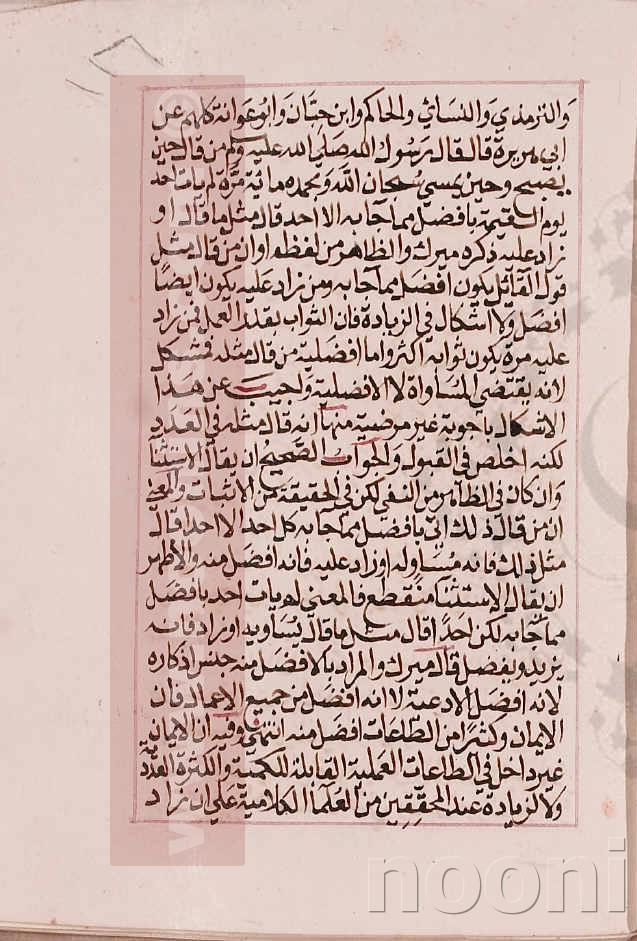 والترمذي والنسائي والحاكم وابن حبان وابو عوانة كلهم عن
ابي هريرة قال قال رسول الله صلى الله عليه وسلم من قال حين
يصبح وحين يمسي سبحان الله وبحمده مائة مرة لم يات احد
يوم القيمة بافضل مما جا به الا احد قال مثل ما قال او
زاد عليه ذكره ميرك والظاهر من لفظه او ان من قال مثل
قول القائل يكون افضل مما جا به ومن زاد عليه يكون ايضا
افضل ولا اشكال في الزيادة فان الثواب بقدر العمل فمن زاد
عليه مرة يكون ثوابه اكثر واما افضلية من قال مثله فمشكل
لانه يقتضي المساواة لا الافضلية واجيب عن هذا
الاشكال باجوبة غير مرضية منها انه قال مثله في العدد
لكنه اخلص في القبول والجواب الصحيح ان يقال الاستثنا
وان كان في الظاهر من النفي لكن في الحقيقة من الاثبات والمعنى
ان من قال ذلك اتى بافضل مما جا به كل احد الا احد قال
مثل ذلك فانه مساو له او زاد عليه فانه افضل منه والاظهر
ان يقال الاستثنا منقطع فالمعنى لم يات احد بافضل
مما جا به لكن احد اقال مثل ما قال يساويه او زاد فانه
يزيد ويفضل قال ميرك والمراد بالافضل منه جنس اذكاره
لانه افضل الادعية لا انه افضل من جميع الاعمال فان
الايمان وكثيرا من الطاعات افضل منه انتهى وفيه ان الايمان
غير داخل في الطاعات العملية القابلة للكمية والكثرة العددية
ولا لزيادة عند المحققين من العلما الكلامية على ان زاد
nooni